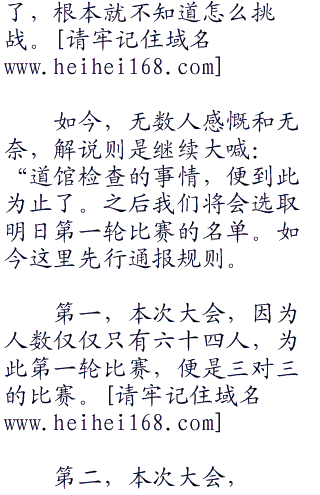 了，根本就不知道怎么挑
战。[请牢记住域名
www.heihei168.com]
如今，无数人感慨和无
奈，解说则是继续大喊：
“道馆检查的事情，便到此
为止了。之后我们将会选取
明日第一轮比赛的名单。如
今这里先行通报规则。
第一，本次大会，因为
人数仅仅只有六十四人，为
此第一轮比赛，便是三对三
的比赛。[请牢记住域名
www.heihei168.com]
第二，本次大会，